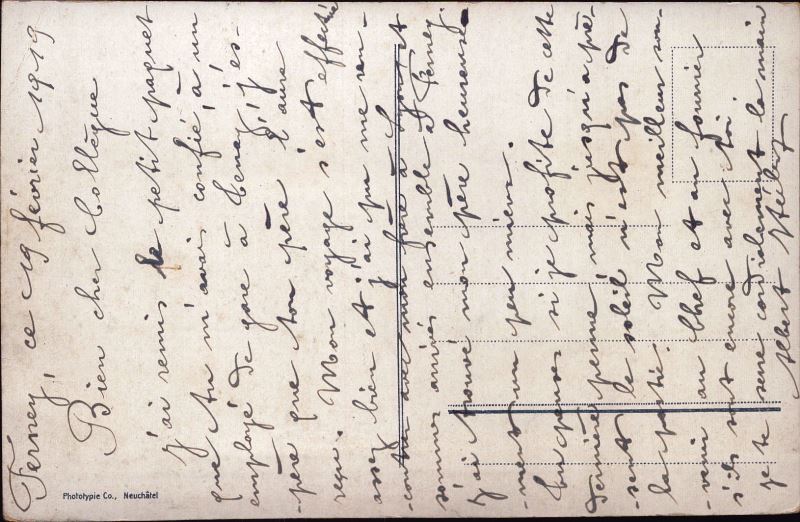 Ferney, ce 19 février 1919
Bien cher Collègue
J'ai remis le petit paquet
que tu m'avais confié à un
employé de gare à Tenay j'es-
-père que ton père l'aura
reçu. Mon voyage s'est effectué
assez bien et j'ai pu me ren-
-contrer avec mon frère à Lyon et
sommes arrivés ensemble à Ferney.
J'ai trouvé mon père heureuse-
-ment un peu mieux.
Tu penses si je profite de cette
dernière perme mais jusqu'à pré-
-sent le soleil n'est pas de
la partie. Mon meilleur sou-
-venir au Chef et au fourrier
s'ils sont encore avec toi.
je te serre cordialement la main
Albert
Phototypie Co., Neuchâtel